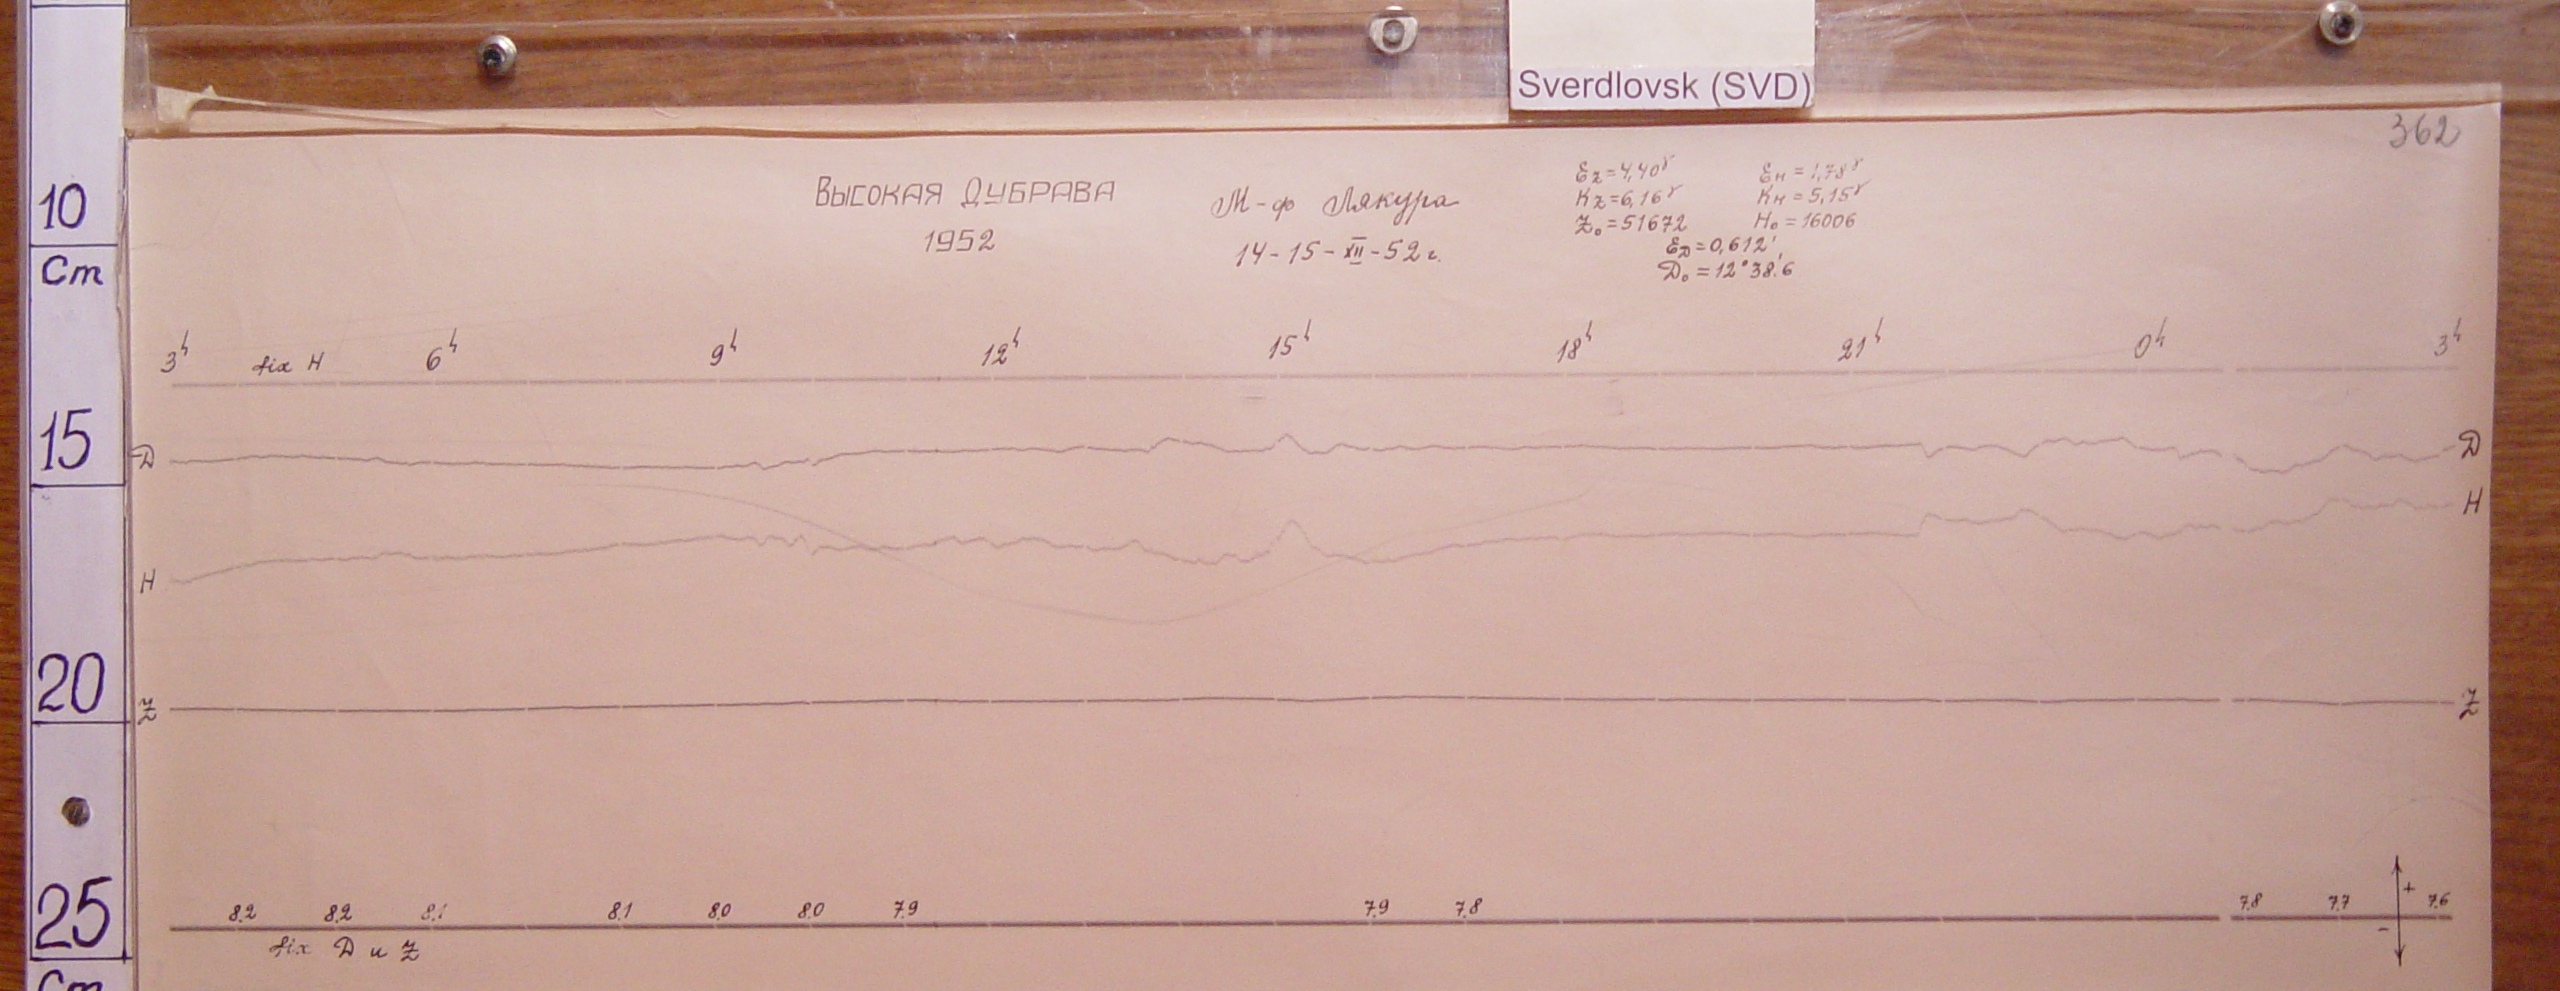 Sverdlovsk (SVD)
362
ВЫСОКАЯ ДУБРАВА
1952
М-ф Лякура
14-15-XII-52 г.
Ez=4,40γ Eн=1,78γ
Kz=6,16γ Kн=5,15γ
Z₀=51672 H₀=16006
ED=0,612'
D₀=12°38.'6
3h fix H 6h 9h 12h 15h 18h 21h 0h 3h
D D
H
H
Z Z
8.2 8.2 8.1 8.1 8.0 8.0 7.9 7.9 7.8 7.8 7.7 + 7.6
-
fix D и Z
10
Cm
15
20
25
Cm